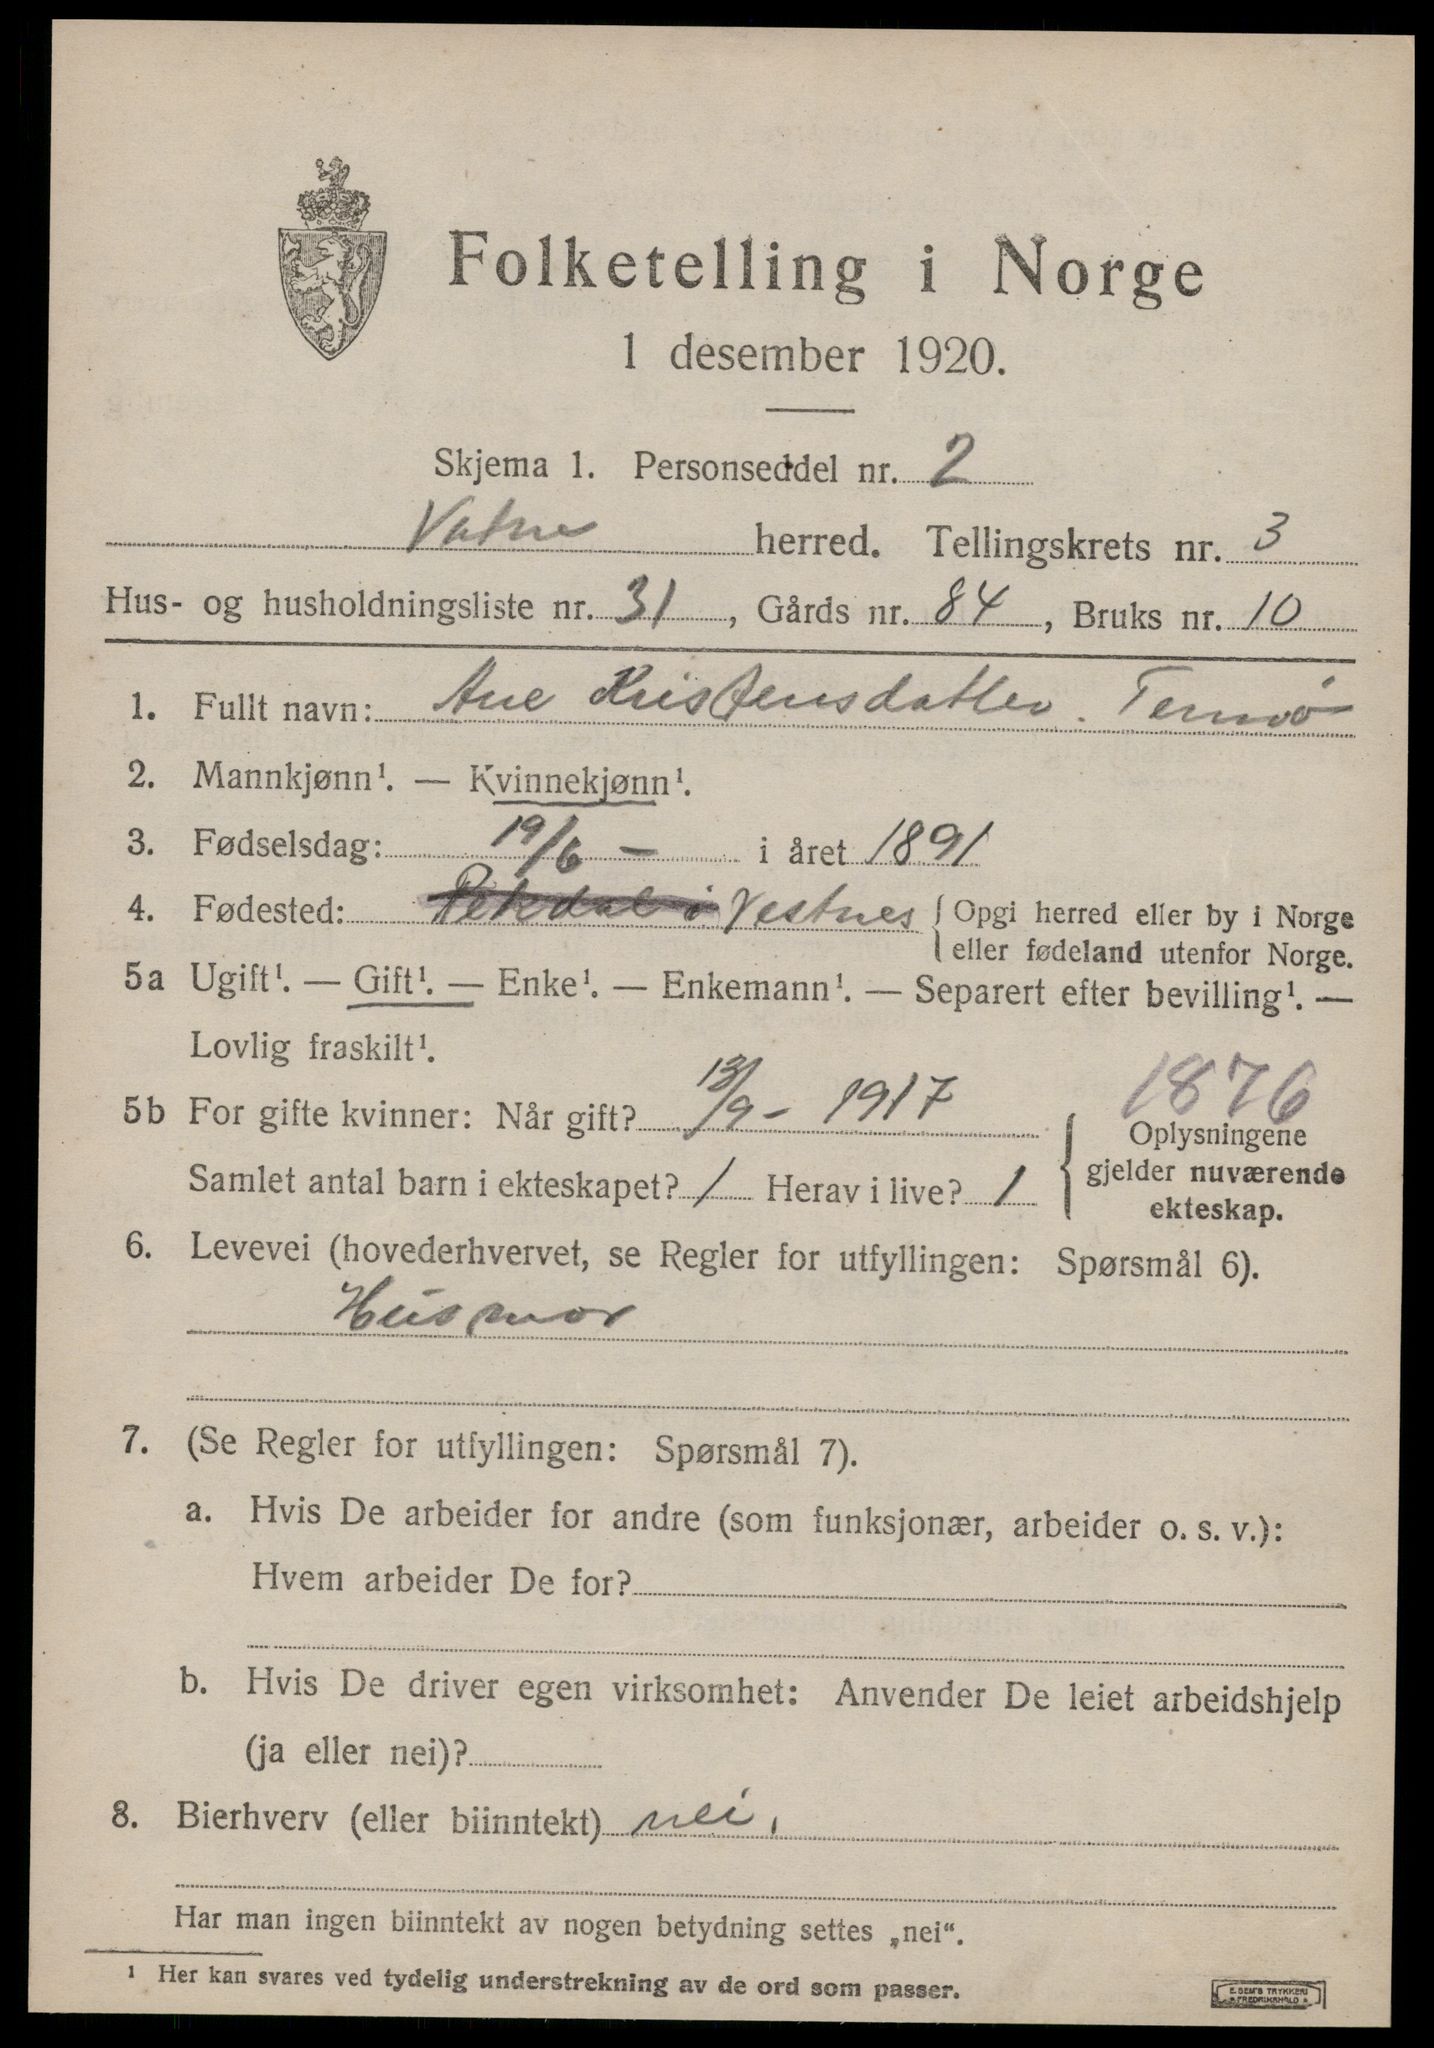 Folketelling i Norge
1 desember 1920.
Skjema 1. Personseddel nr. 2
Vatne herred. Tellingskrets nr. 3
Hus- og husholdningsliste nr. 31, Gårds nr. 84, Bruks nr. 10
1. Fullt navn: Ane Kristensdatter.
2. Mannkjønn¹. — Kvinnekjønn¹.
3. Fødselsdag: 19/6 – i året 1891
4. Fødested: Vestnes { Opgi herred eller by i Norge
eller fødeland utenfor Norge.
5a Ugift¹. — Gift¹. — Enke¹. — Enkemann¹. — Separert efter bevilling¹. —
Lovlig fraskilt¹.
1876
5b For gifte kvinner: Når gift? 13/9 - 1917
Samlet antal barn i ekteskapet? 1 Herav i live? 1
Oplysningene
gjelder nuværende
ekteskap.
6. Levevei (hovederhvervet, se Regler for utfyllingen: Spørsmål 6).
Husmor
7. (Se Regler for utfyllingen: Spørsmål 7).
a. Hvis De arbeider for andre (som funksjonær, arbeider o. s. v.):
Hvem arbeider De for?
b. Hvis De driver egen virksomhet: Anvender De leiet arbeidshjelp
(ja eller nei)?
8. Bierhverv (eller biinntekt) nei.
Har man ingen biinntekt av nogen betydning settes „nei“.
¹ Her kan svares ved tydelig understrekning av de ord som passer.
E. SEM'S TRYKKERI
FREDRIKSHALD